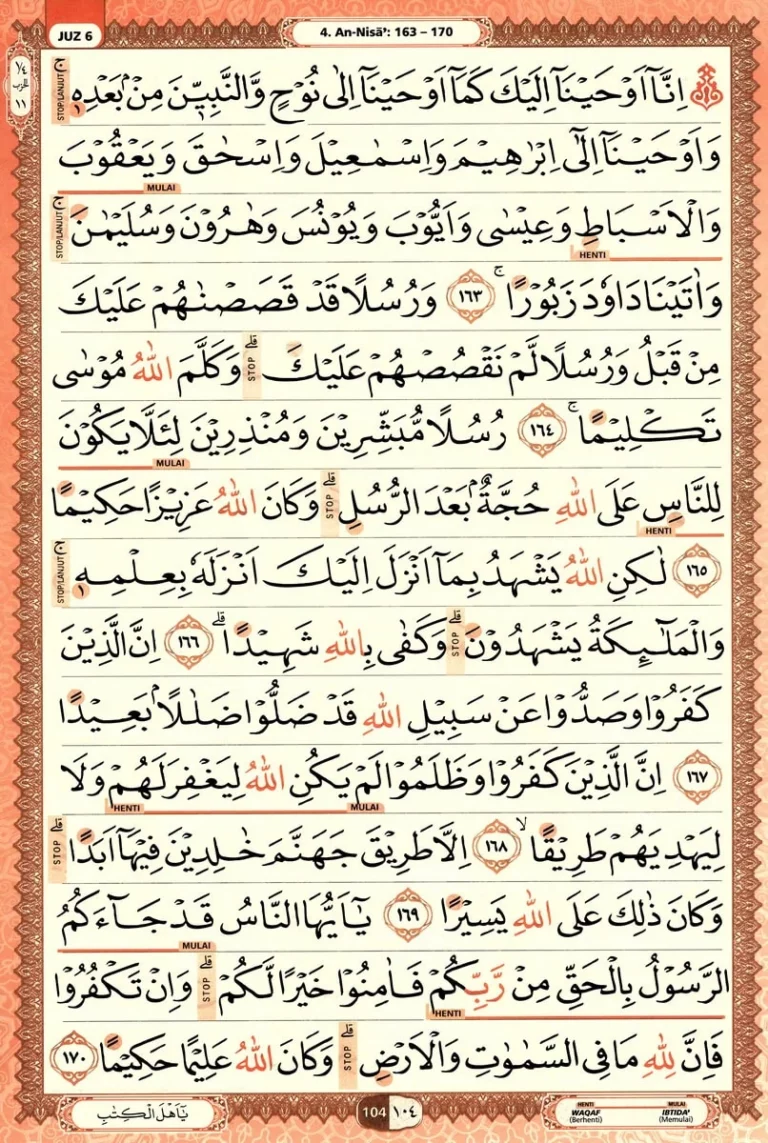 JUZ 6
4. An-Nisā': 163 – 170
¼
الحزب
١١
اِنَّآ اَوْحَيْنَآ اِلَيْكَ كَمَآ اَوْحَيْنَآ اِلٰى نُوْحٍ وَّالنَّبِيّٖنَ مِنْۢ بَعْدِهٖۚ STOP/LANJUT
وَاَوْحَيْنَآ اِلٰٓى اِبْرٰهِيْمَ وَاِسْمٰعِيْلَ وَاِسْحٰقَ وَيَعْقُوْبَ
MULAI
وَالْاَسْبَاطِ وَعِيْسٰى وَاَيُّوْبَ وَيُوْنُسَ وَهٰرُوْنَ وَسُلَيْمٰنَۚ STOP/LANJUT
HENTI
وَاٰتَيْنَا دَاوٗدَ زَبُوْرًاۚ ١٦٣ وَرُسُلًا قَدْ قَصَصْنٰهُمْ عَلَيْكَ
مِنْ قَبْلُ وَرُسُلًا لَّمْ نَقْصُصْهُمْ عَلَيْكَۗ STOP وَكَلَّمَ اللّٰهُ مُوْسٰى
تَكْلِيْمًاۚ ١٦٤ رُسُلًا مُّبَشِّرِيْنَ وَمُنْذِرِيْنَ لِئَلَّا يَكُوْنَ
MULAI
لِلنَّاسِ عَلَى اللّٰهِ حُجَّةٌۢ بَعْدَ الرُّسُلِۗ STOP وَكَانَ اللّٰهُ عَزِيْزًا حَكِيْمًا
HENTI
١٦٥ لٰكِنِ اللّٰهُ يَشْهَدُ بِمَآ اَنْزَلَ اِلَيْكَ اَنْزَلَهٗ بِعِلْمِهٖۚ STOP/LANJUT
وَالْمَلٰۤىِٕكَةُ يَشْهَدُوْنَۗ STOP وَكَفٰى بِاللّٰهِ شَهِيْدًاۗ ١٦٦ اِنَّ الَّذِيْنَ
كَفَرُوْا وَصَدُّوْا عَنْ سَبِيْلِ اللّٰهِ قَدْ ضَلُّوْا ضَلٰلًاۢ بَعِيْدًا
١٦٧ اِنَّ الَّذِيْنَ كَفَرُوْا وَظَلَمُوْا لَمْ يَكُنِ اللّٰهُ لِيَغْفِرَ لَهُمْ وَلَا
MULAI HENTI
لِيَهْدِيَهُمْ طَرِيْقًاۙ ١٦٨ اِلَّا طَرِيْقَ جَهَنَّمَ خٰلِدِيْنَ فِيْهَآ اَبَدًاۗ STOP
وَكَانَ ذٰلِكَ عَلَى اللّٰهِ يَسِيْرًا ١٦٩ يٰٓاَيُّهَا النَّاسُ قَدْ جَاۤءَكُمُ
MULAI
الرَّسُوْلُ بِالْحَقِّ مِنْ رَّبِّكُمْ فَاٰمِنُوْا خَيْرًا لَّكُمْۗ STOP وَاِنْ تَكْفُرُوْا
HENTI
فَاِنَّ لِلّٰهِ مَا فِى السَّمٰوٰتِ وَالْاَرْضِۗ STOP وَكَانَ اللّٰهُ عَلِيْمًا حَكِيْمًا ١٧٠
يٰٓاَهْلَ الْكِتٰبِ
104 ١٠٤
HENTI MULAI
WAQAF IBTIDA'
(Berhenti) (Memulai)